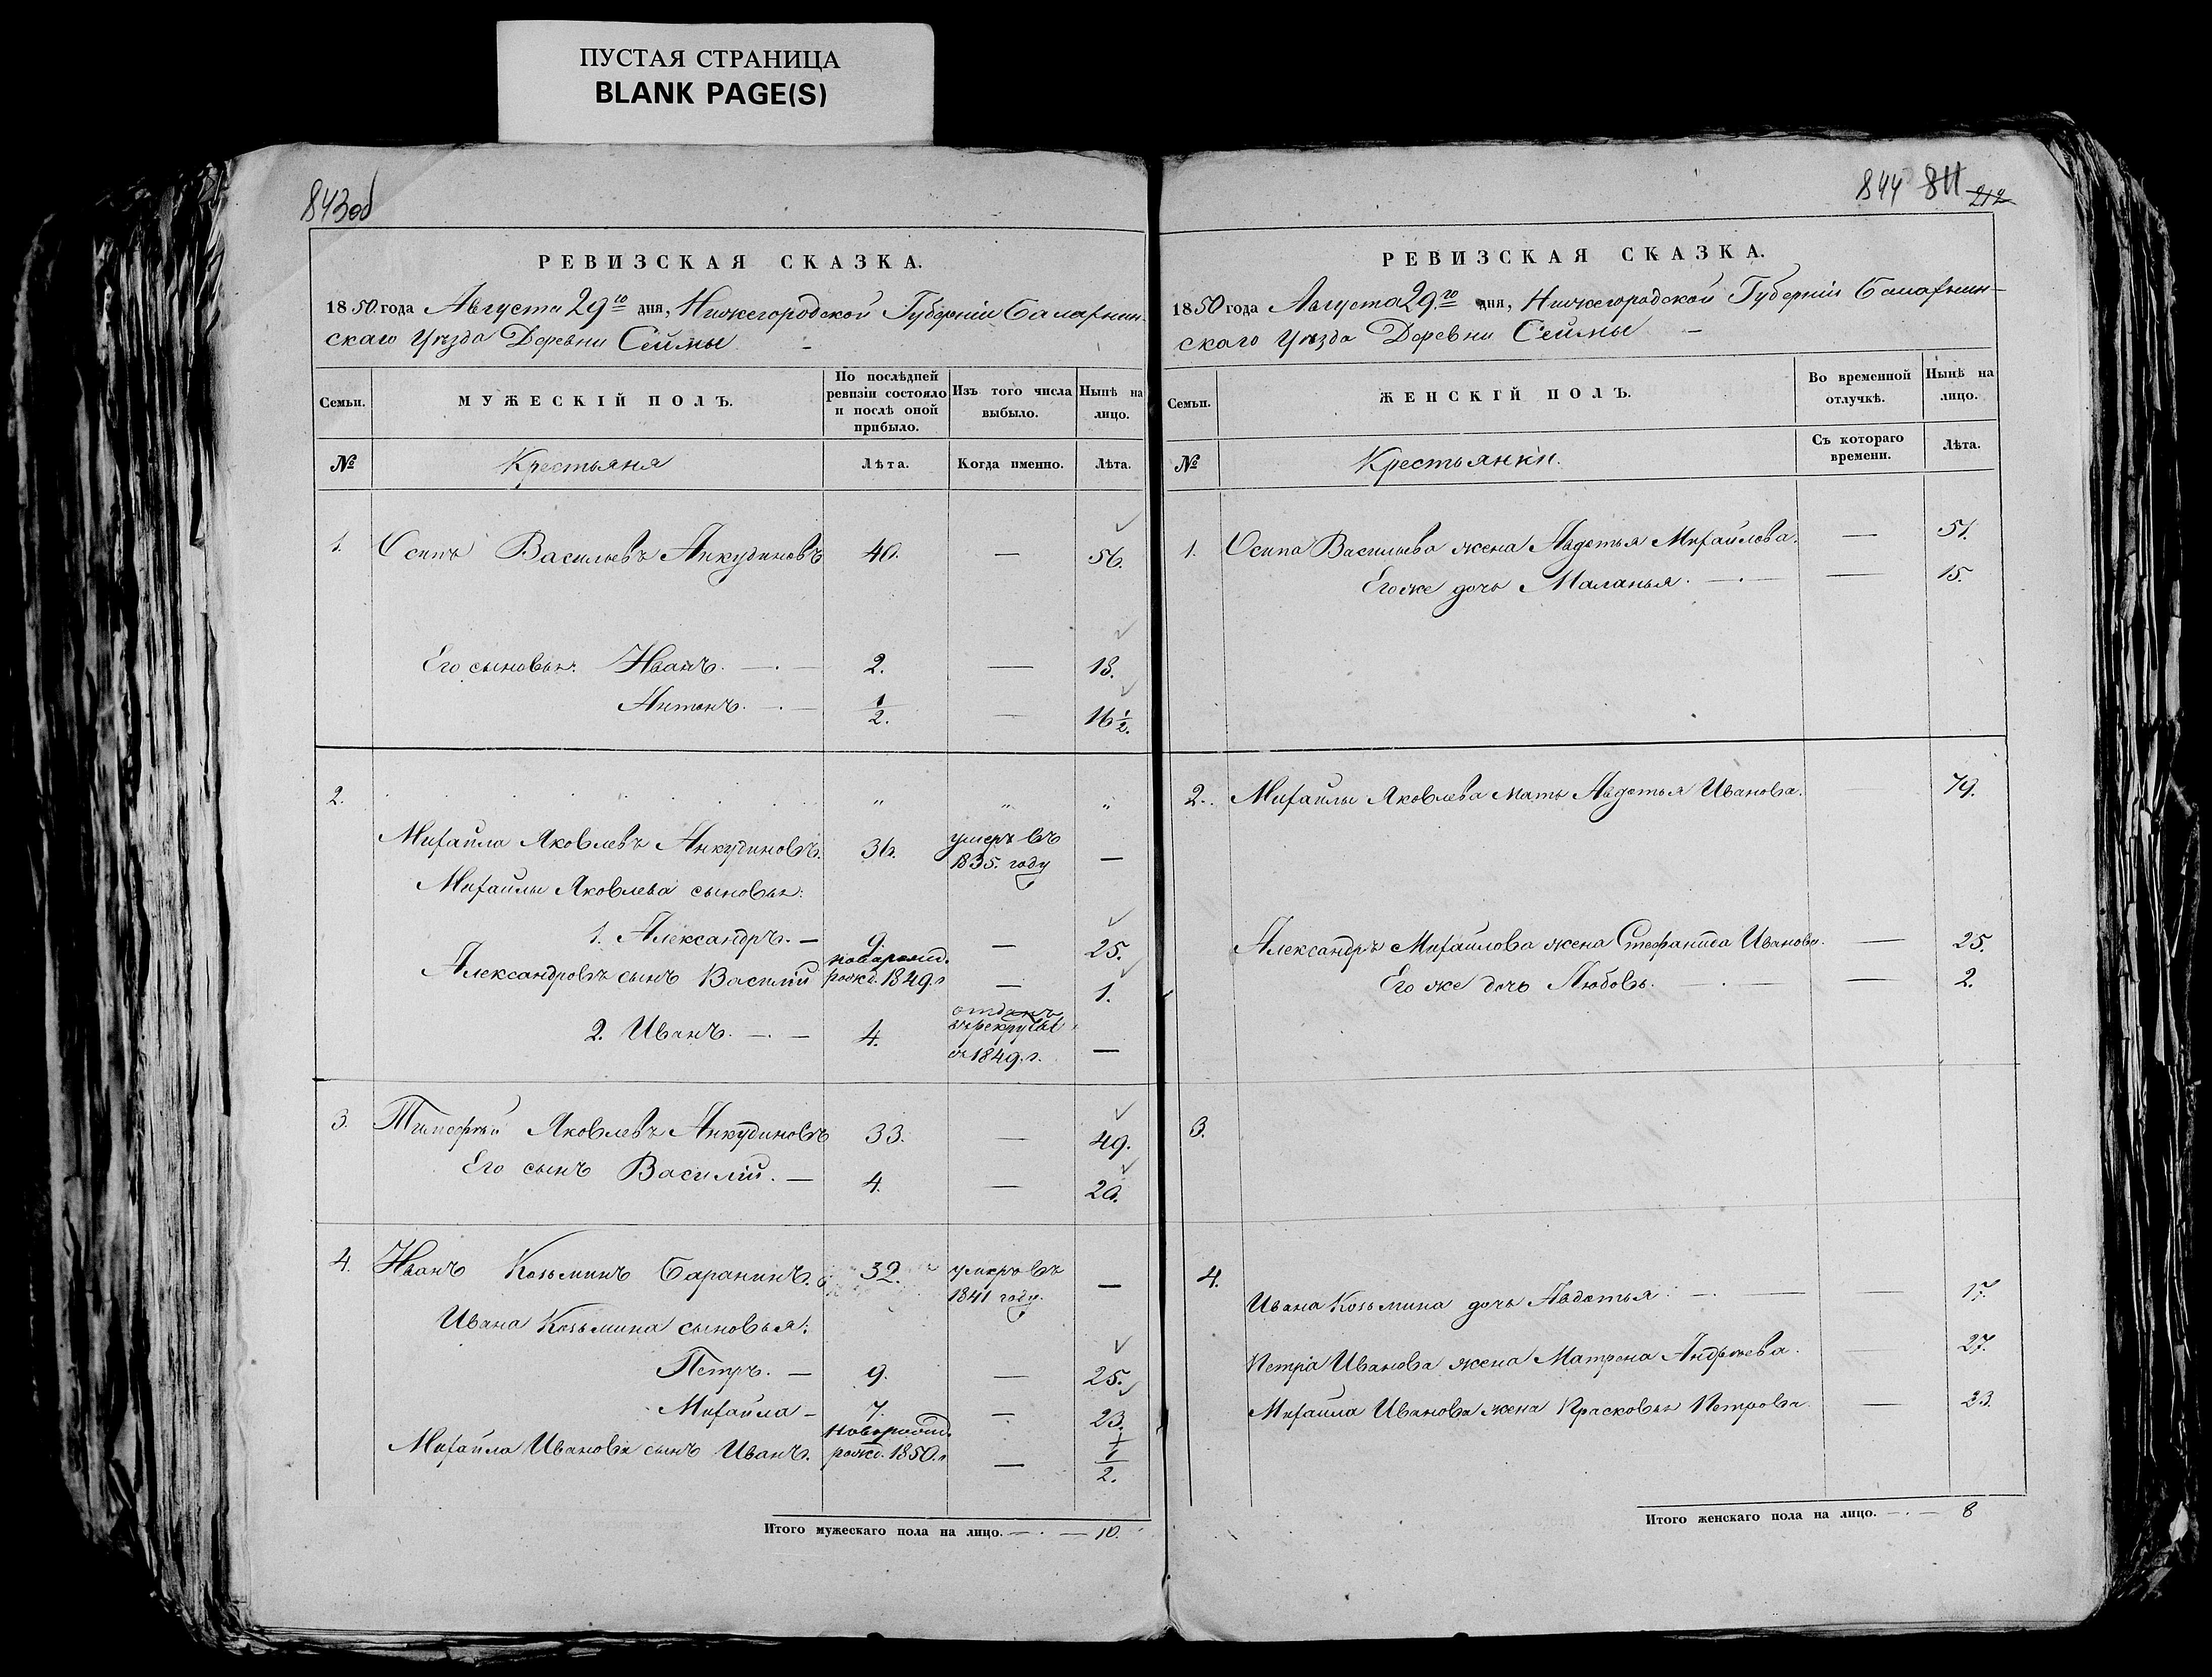 ПУСТАЯ СТРАНИЦА
BLANK PAGE(S)
843об
РЕВИЗСКАЯ СКАЗКА.
1850 года Августа 29го дня, Нижегородской Губерніи Балахнин-
скаго Уѣзда Деревни Сеймы —
Семьи. МУЖЕСКІЙ ПОЛЪ. По послѣдней ревизіи состояло и послѣ оной прибыло. Изъ того числа выбыло. Нынѣ на лицо.
№ Крестьяня Лѣта. Когда именно. Лѣта.
1. Осипъ Васильевъ Анкудиновъ 40. — 56.
Его сыновья: Иванъ. — 2. — 18.
Антонъ. — 1/2. — 16 1/2.
2. " " "
Михайла Яковлевъ Анкудиновъ. 36. умеръ въ 1835. году —
Михайлы Яковлева сыновья:
1. Александръ. — 9. — 25.
Александровъ сынъ Василій новорожд. рожд. 1849. г — 1.
2. Иванъ. — 4. отданъ въ рекруты въ 1849. г. —
3. Тимофѣй Яковлевъ Анкудиновъ 33. — 49.
Его сынъ Василій. — 4. — 20.
4. Иванъ Козьминъ Баранинъ. 32. умеръ въ 1841 году. —
Ивана Козьмина сыновья:
Петръ. — 9. — 25.
Михайла — 7. — 23.
Михайла Иванова сынъ Иванъ. новорожд. рожд. 1850. г — 1/2.
Итого мужескаго пола на лицо. — 10.
844 811 212
РЕВИЗСКАЯ СКАЗКА.
1850 года Августа 29.го дня, Нижегородской Губерніи Балахнин-
скаго Уѣзда Деревни Сеймы —
Семьи. ЖЕНСКІЙ ПОЛЪ. Во временной отлучкѣ. Нынѣ на лицо.
№ Крестьянки. Съ котораго времени. Лѣта.
1. Осипа Васильева жена Авдотья Михайлова. — 51.
Его же дочь Маланья. — — 15.
2. Михайлы Яковлева мать Авдотья Иванова. — 79.
Александръ Михайлова жена Стефанида Иванова. — 25.
Его же дочь Любовь. — — 2.
3.
4. Ивана Козьмина дочь Авдотья. — — 17.
Петра Иванова жена Матрена Андреева. — 27.
Михаила Иванова жена Прасковья Петрова. — 23.
Итого женскаго пола на лицо. — 8